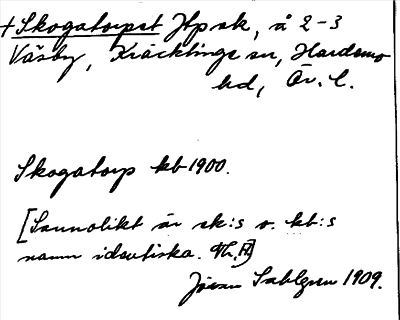 + Skogatorpet Jtp sk, å 2-3
Väsby, Kräcklinge sn, Hardemo
hd, Ör. l.
Skogatorp kb 1900.
[Sannolikt är sk:s o. kb:s
namn identiska. Th. R]
Jöran Sahlgren 1909.